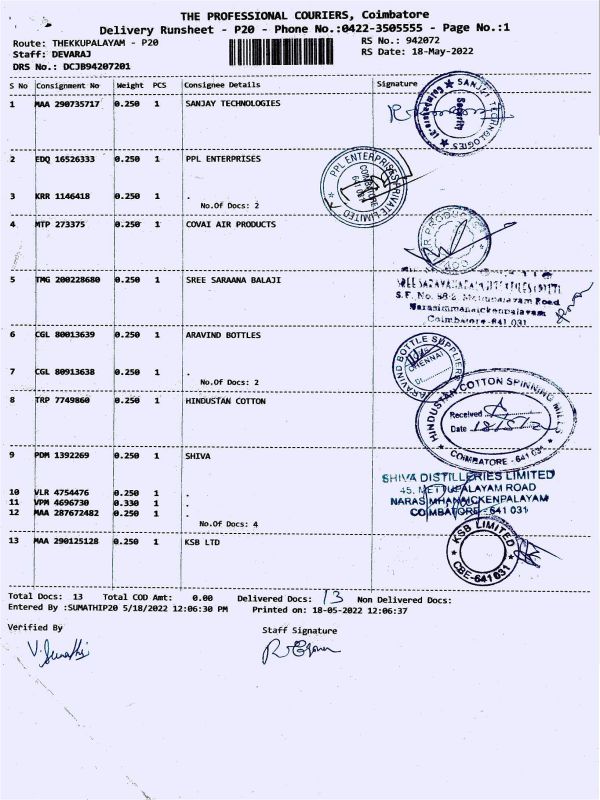 THE PROFESSIONAL COURIERS, Coimbatore
Delivery Runsheet - P20 - Phone No.:0422-3505555 - Page No.:1
Route: THEKKUPALAYAM - P20
Staff: DEVARAJ
DRS No.: DCJB94207201
RS No.: 942072
RS Date: 18-May-2022
S No Consignment No Weight PCS Consignee Details Signature
1 MAA 290735717 0.250 1 SANJAY TECHNOLOGIES
SANJAY TECHNOLOGIES
Security
2 EDQ 16526333 0.250 1 PPL ENTERPRISES
PPL ENTERPRISES PRIVATE LIMITED
COIMBATORE
3 KRR 1146418 0.250 1 .
No.Of Docs: 2
4 MTP 273375 0.250 1 COVAI AIR PRODUCTS
AIR PRODUCTS
5 TMG 200228680 0.250 1 SREE SARAANA BALAJI
S.F. No. 58-2, Mettupalayam Road
Narasimmanaickenpalayam
Coimbatore-641 031
6 CGL 80013639 0.250 1 ARAVIND BOTTLES
ARAVIND BOTTLE SUPPLIERS
CHENNAI
7 CGL 80913638 0.250 1 .
No.Of Docs: 2
8 TRP 7749860 0.250 1 HINDUSTAN COTTON
HINDUSTAN COTTON SPINNING MILLS
Received
Date 18/5/22
COIMBATORE - 641 031
9 PDM 1392269 0.250 1 SHIVA
SHIVA DISTILLERIES LIMITED
45, METTUPALAYAM ROAD
NARASIMHANAICKENPALAYAM
COIMBATORE - 641 031
10 VLR 4754476 0.250 1 .
11 VPM 4696730 0.330 1 .
12 MAA 287672482 0.250 1 .
No.Of Docs: 4
13 MAA 290125128 0.250 1 KSB LTD
KSB LIMITED
CBE-641 031
Total Docs: 13 Total COD Amt: 0.00 Delivered Docs: 13 Non Delivered Docs:
Entered By :SUMATHIP20 5/18/2022 12:06:30 PM Printed on: 18-05-2022 12:06:37
Verified By
Staff Signature
V. Sumathi